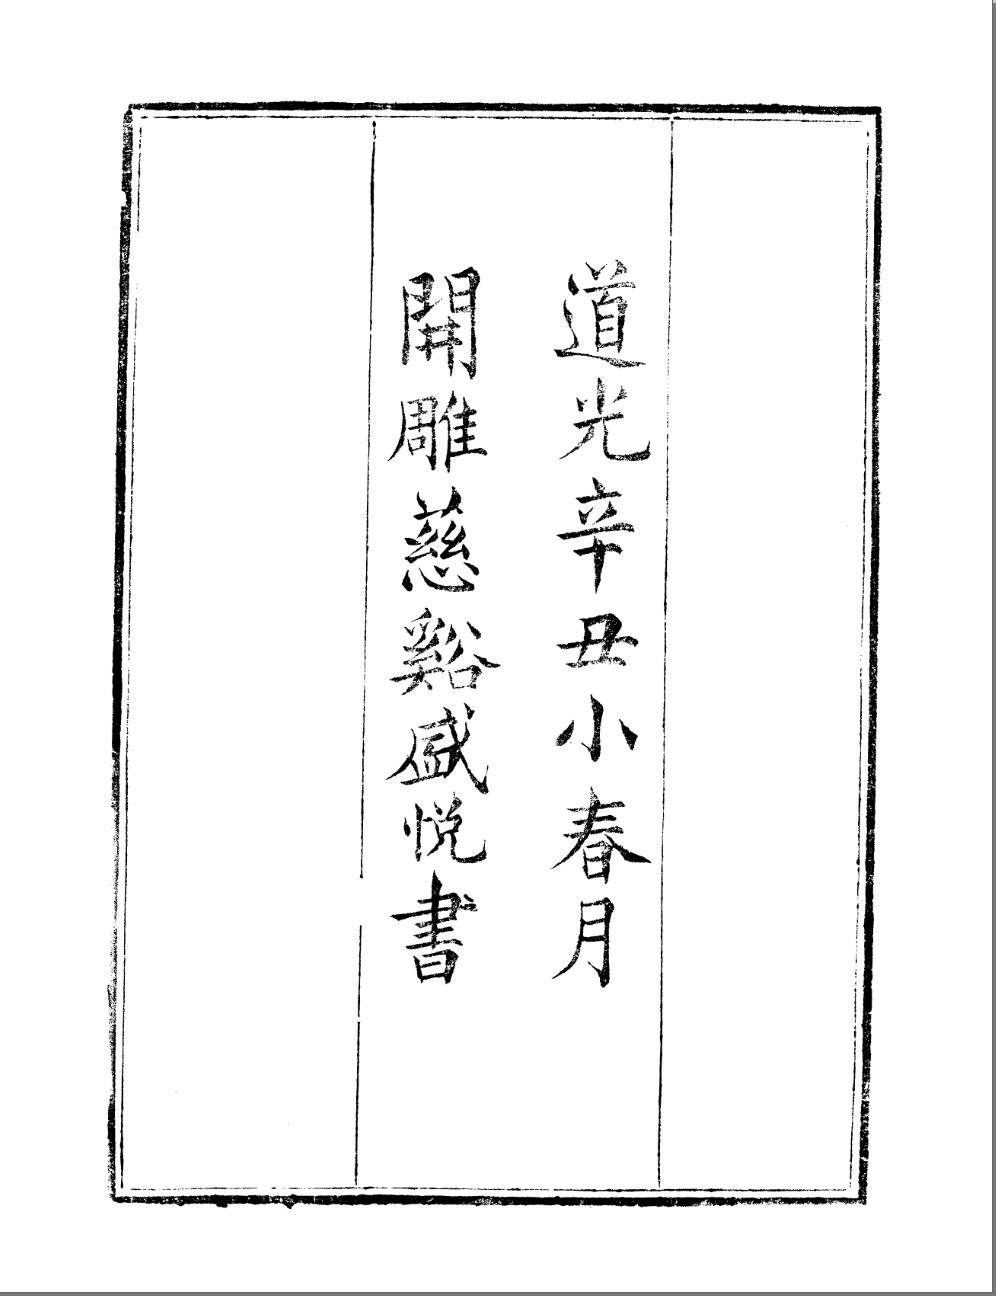 道光辛丑小春月
開雕慈谿盛悅書